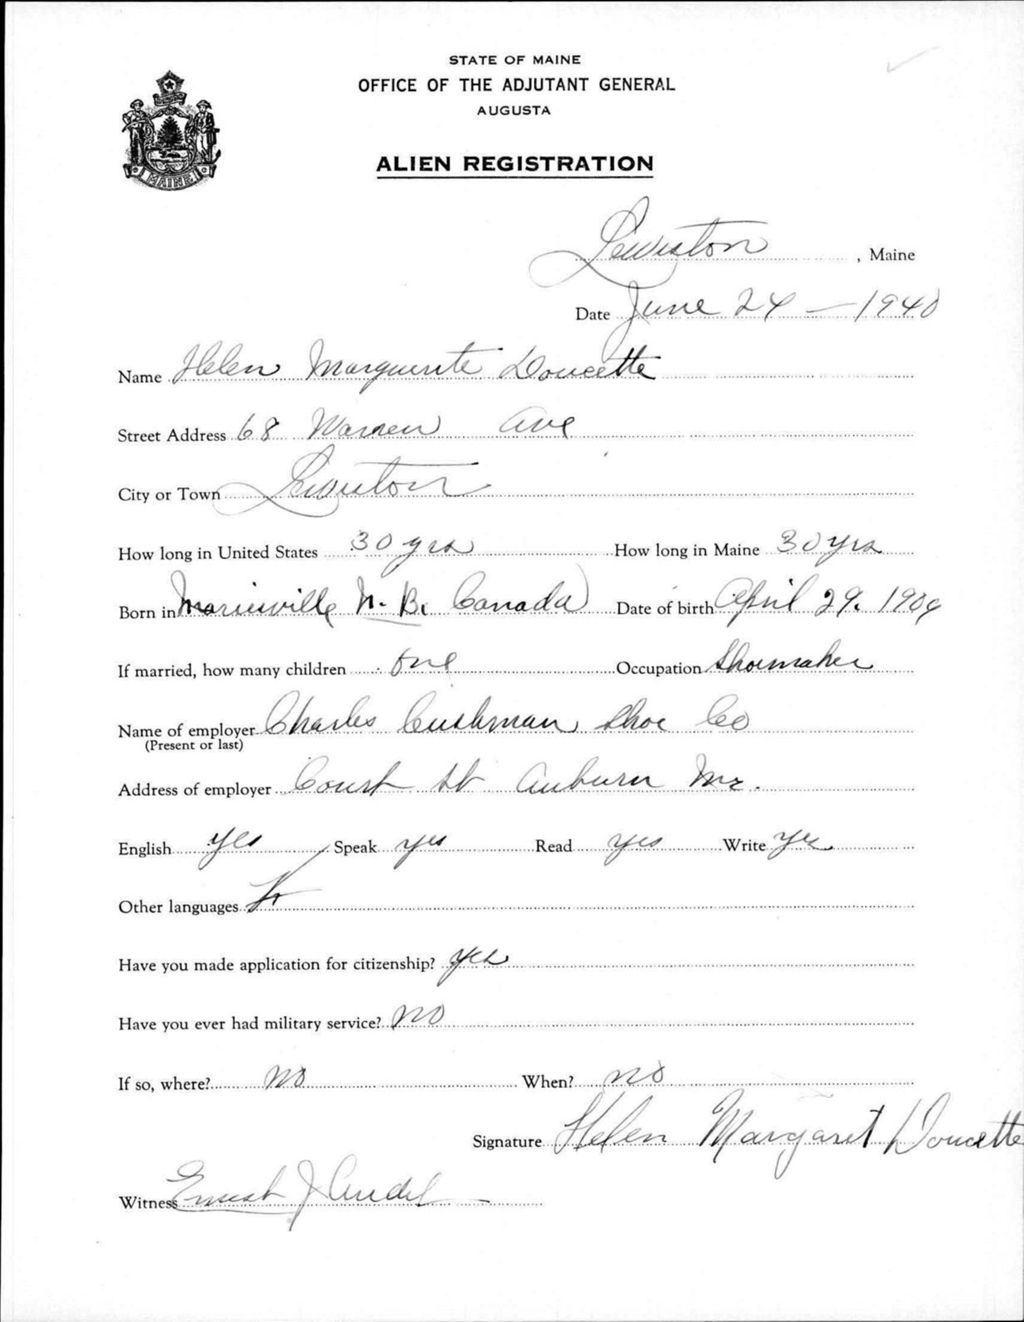 STATE OF MAINE
OFFICE OF THE ADJUTANT GENERAL
AUGUSTA
ALIEN REGISTRATION
MAINE
Lewiston, Maine
Date June 24 - 1940
Name Helen Marguerite Doucette
Street Address 68 Warren Ave
City or Town Lewiston
How long in United States 30 yrs How long in Maine 30 yrs
Born in N. B. Canada Date of birth April 29. 1909
If married, how many children one Occupation Shoemaker
Name of employer Charles Cushman Shoe Co
(Present or last)
Address of employer Court St Auburn Me.
English yes Speak yes Read yes Write yes
Other languages
Have you made application for citizenship? yes
Have you ever had military service? no
If so, where? no When? no
Signature Helen Margaret Doucette
Witness Ernest J